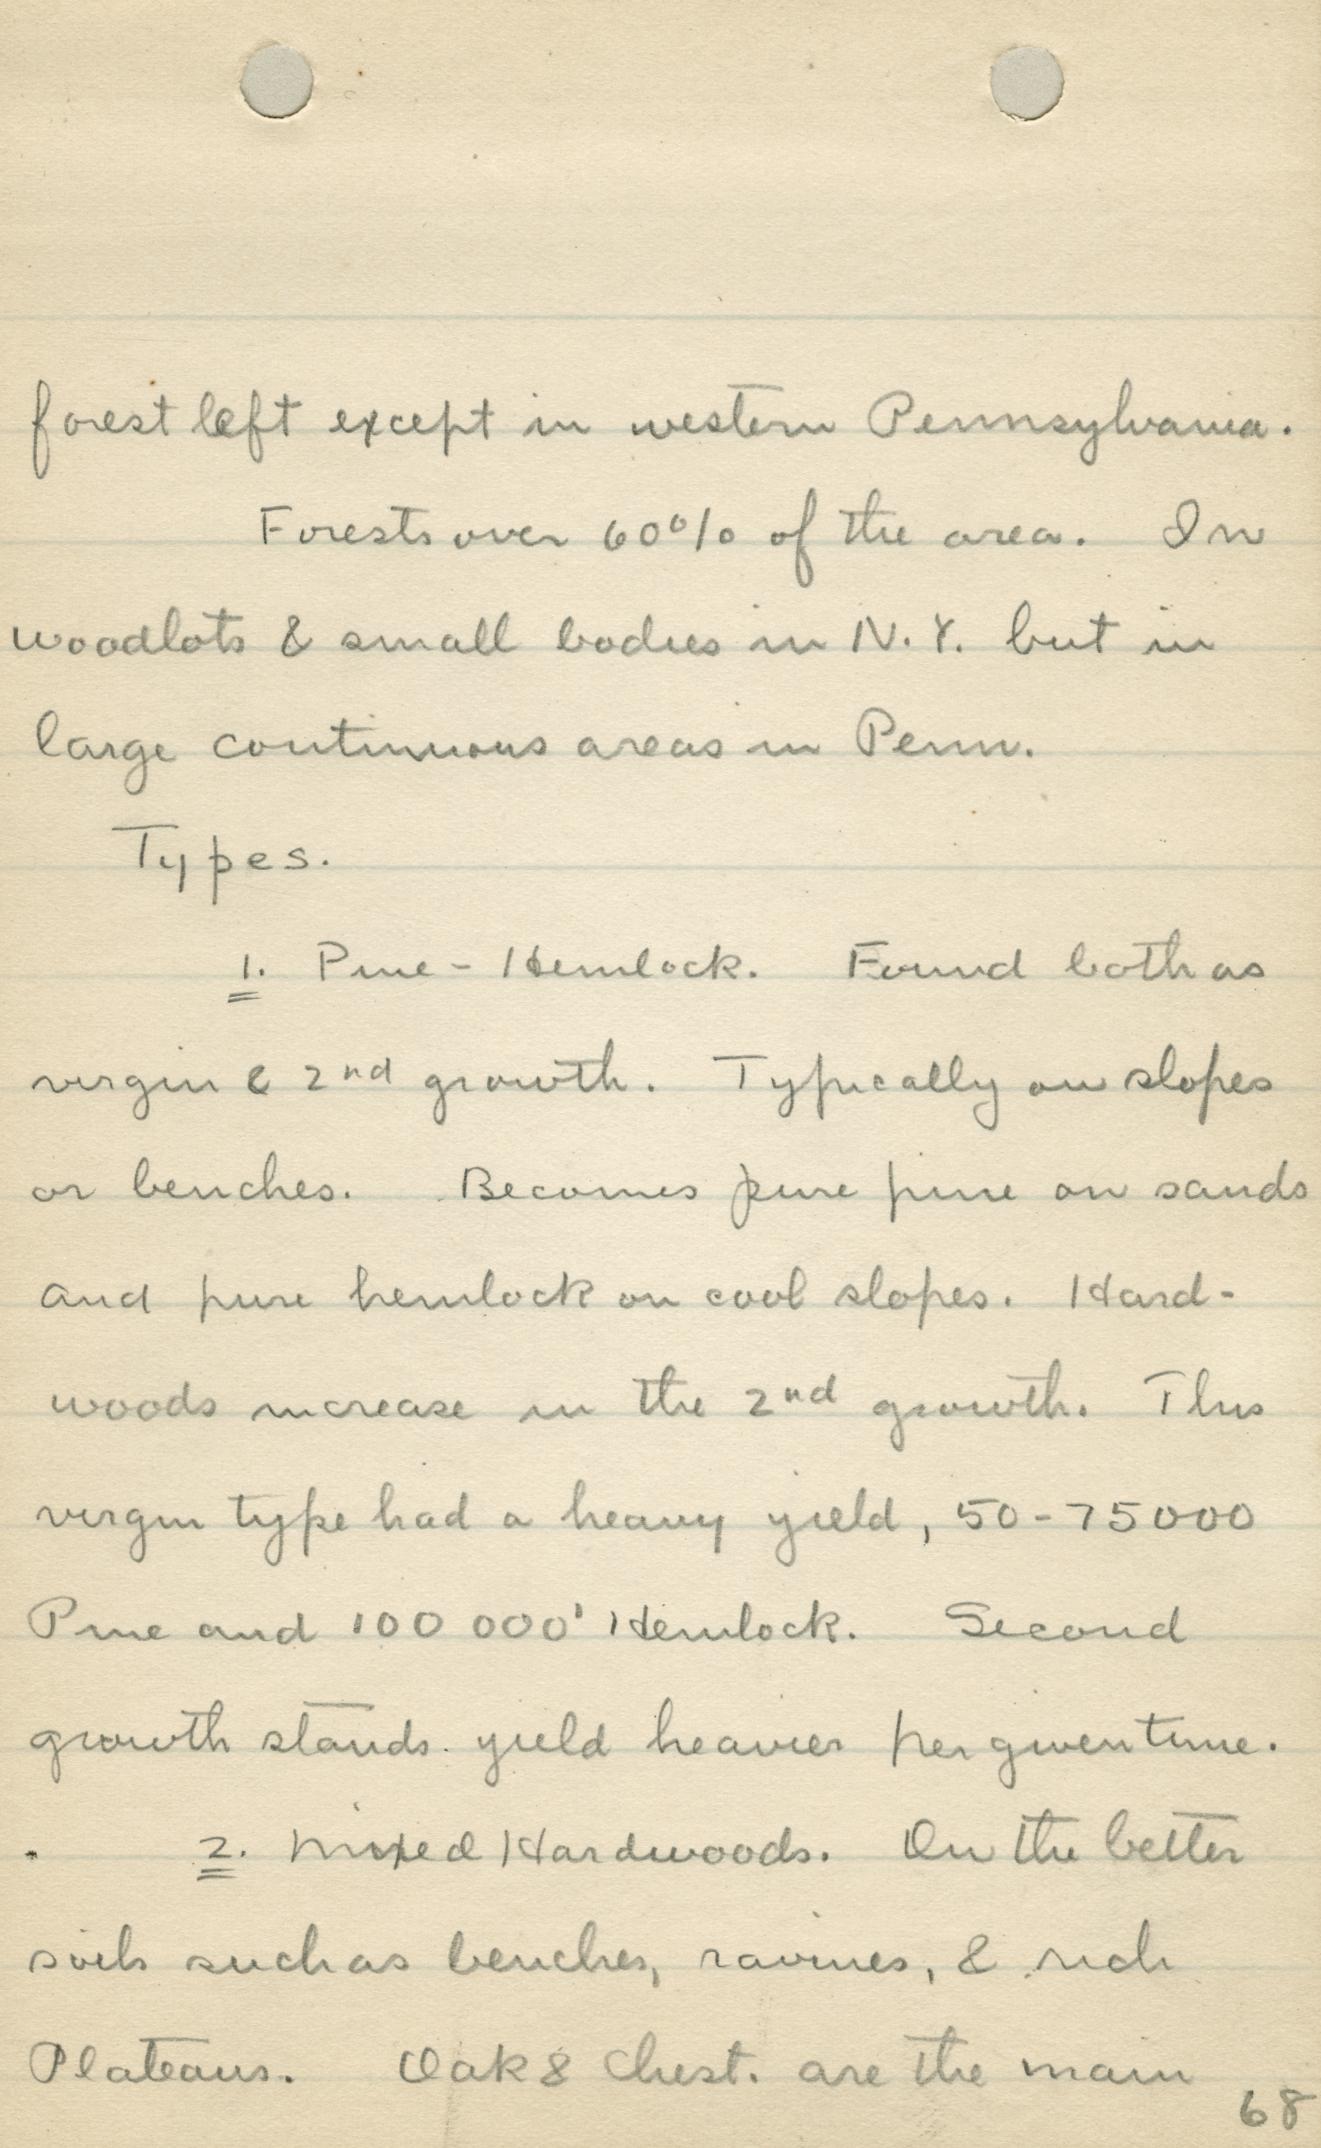 forest left except in western Pennsylvania.
Forests over 60% of the area. In
woodlots & small bodies in N.Y. but in
large continuous areas in Penn.
Types.
1. Pine - Hemlock. Found both as
virgin & 2nd growth. Typically on slopes
or benches. Becomes pure pine on sands
and pure hemlock on cool slopes. Hard-
woods increase in the 2nd growth. This
virgin type had a heavy yield, 50-75000
Pine and 100 000' Hemlock. Second
growth stands yield heavier per given time.
2. Mixed Hardwoods. On the better
soils such as benches, ravines, & rich
Plateaus. Oak & Chest. are the main
68